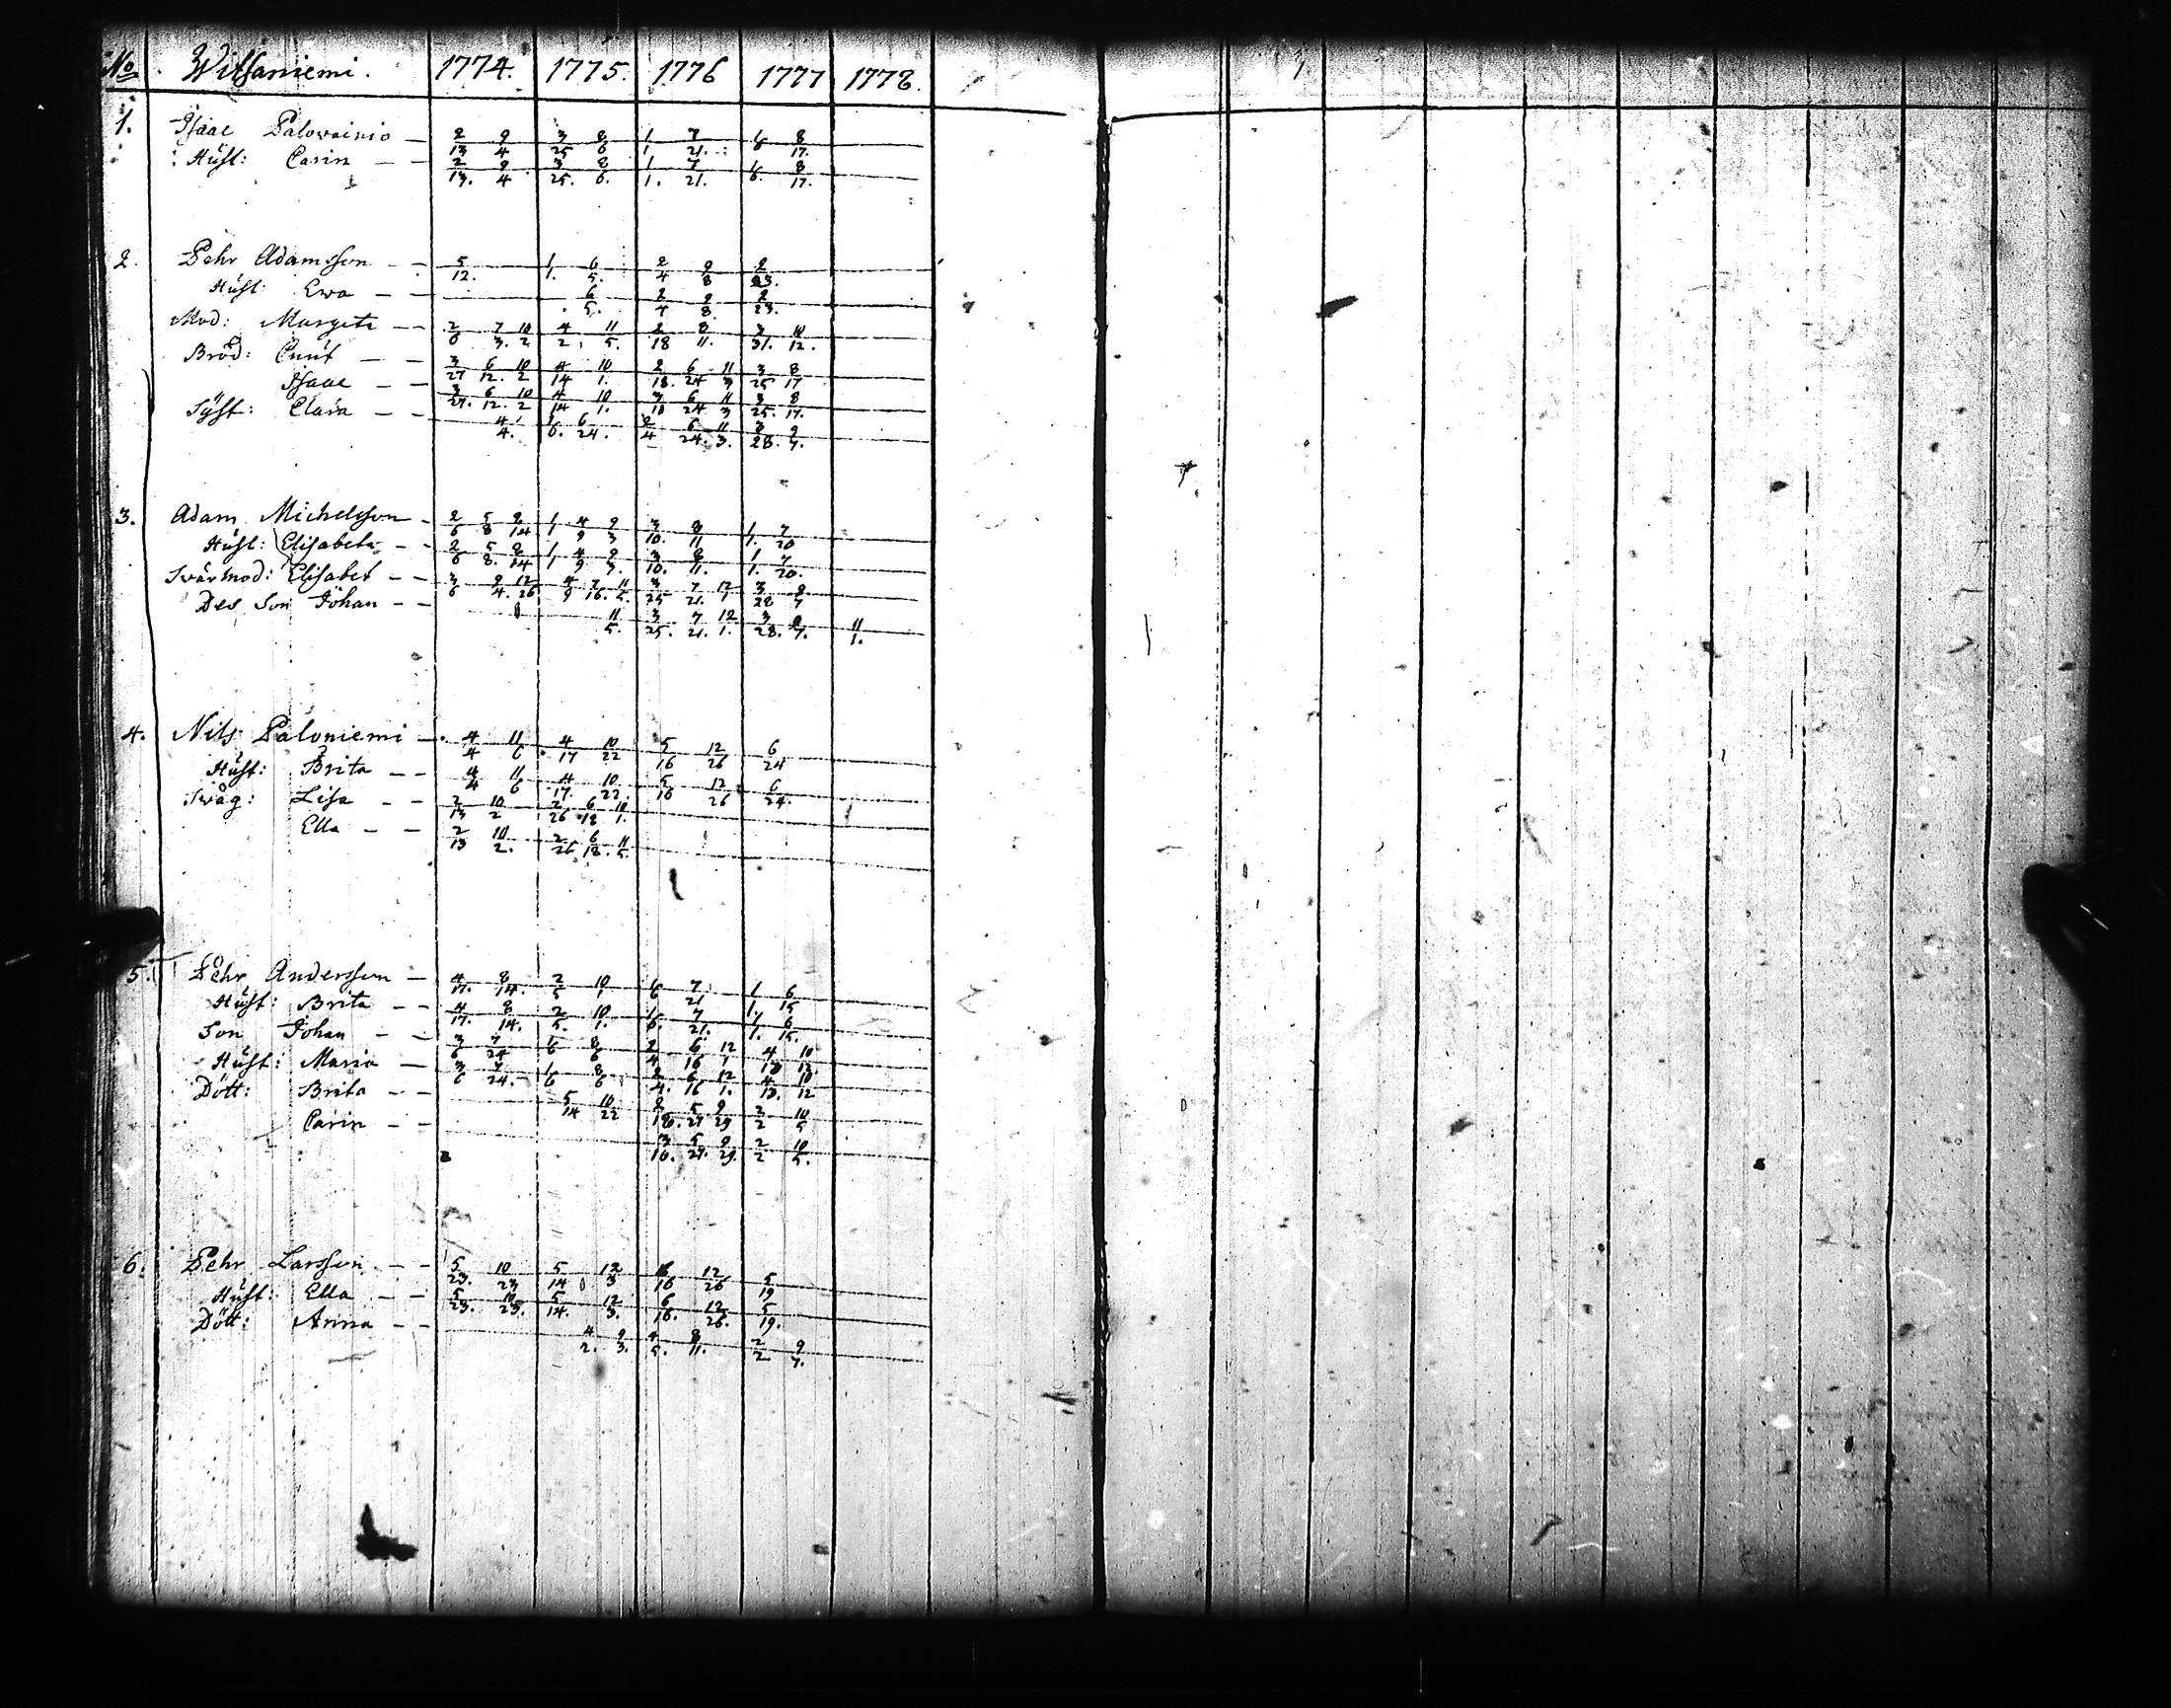 No. Witsaniemi. 1774. 1775. 1776 1777 1778.
1. Isaac Palowainio — 2/13 9/4 3/25 8/6 1/1 7/21. 1/6 8/17.
Hust: Carin — — 2/13. 9/4 3/25. 8/6. 1/1. 7/21. 1/6. 8/17.
2. Pehr Adamsson — — 5/12. 1/1. 6/5. 2/4 9/8 2/23.
Hust: Ewa — — 6/5. 2/4 9/8. 2/23.
Mod: Margeta — — 2/6 7/3. 10/2 4/2. 11/5. 2/18 8/11. 3/31. 10/12.
Bröd: Cnut — — 3/27 6/12. 10/2 4/14 10/1. 2/18. 6/24 11/3 3/25 8/17
Isaac — — 3/27. 6/12. 10/2 4/14 10/1. 6/24 11/3 3/25. 8/17.
Syst: Clara — — 4/4. 1/6. 6/24. 2/4 6/24. 11/3. 3/28. 9/7.
3. Adam Michelsson — 2/6 5/8 9/14 1/1 4/9 9/3 3/10. 8/11 1/1. 7/20
Hust: Elisabeta — — 2/6 5/8. 9/14 1/1 4/9 9/3. 3/10. 8/11. 1/1. 7/20.
Swärmod: Elisabet — — 3/6 9/4. 12/26 4/9 7/16. 11/5. 3/25 7/21. 12/1 3/28 9/7
Des Son Johan — — 11/5. 3/25. 7/21. 12/1. 3/28. 9/7. 11/1.
4. Nils Paloniemi — 4/4 11/6 4/17 10/22 5/16 12/26 6/24
Hust: Brita — — 4/4 11/6 4/17. 10/22. 5/16 12/26 6/24.
Swåg: Lisa — — 2/13 10/2 2/26 6/18 11/1.
Ella — — 2/13 10/2. 2/26 6/18. 11/5.
5. Pehr Andersson — 4/17. 8/14. 2/5 10/1 1/6 7/21 1/1. 6/15
Hust: Brita — — 4/17. 8/14. 2/5. 10/1. 1/6. 7/21. 1/1. 6/15.
Son Johan — — 3/6 7/24 1/6 8/6 2/4 6/16 12/1 4/13 10/12.
Hust: Maria — 3/6 7/24. 1/6 8/6 2/4. 6/16 12/1. 4/13. 10/12
Dött: Brita — — 5/14 10/22 5/27 9/29 2/2 10/5
Carin — — 3/16. 5/27. 9/29. 2/2 10/5.
6. Pehr Larsson — — 5/23. 10/23 5/14 12/3 6/16 12/26 5/19
Hust: Ella — — 5/23. 10/23. 5/14. 12/3. 6/16. 12/26. 5/19.
Dött: Anna — — 4/2. 9/3. 4/5. 8/11. 2/2 9/7.